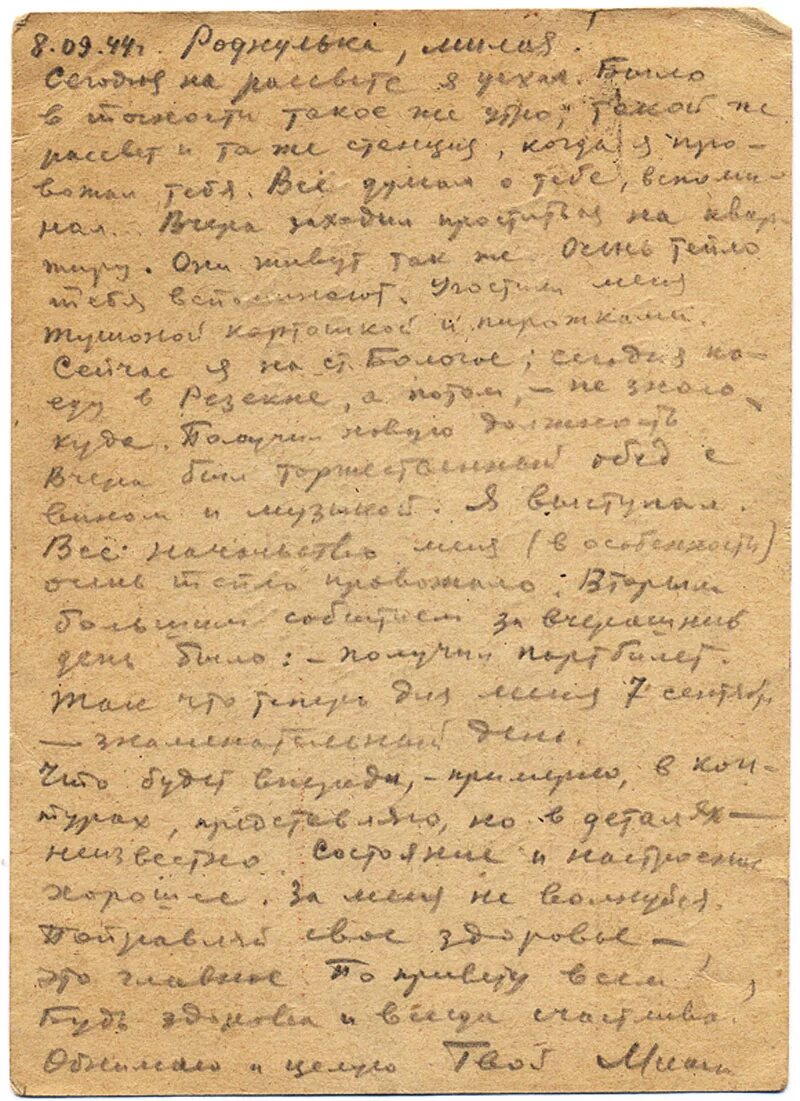 8.09.44г. Роднулька, милая.
Сегодня на рассвете я уехал. Было
в точности такое же утро, такой же
рассвет и та же станция, когда я про-
вожал тебя. Всё думал о тебе, вспоми-
нал. Вчера заходил проститься на квар-
тиру. Они живут так же. Очень тепло
тебя вспоминают. Угостили меня
тушоной картошкой и пирожками.
Сейчас я на ст. Бологое; сегодня по-
еду в Резекне, а потом, – не знаю
куда. Получил новую должность
Вчера был торжественный обед с
вином и музыкой. Я выступал.
Всё начальство меня (в особенность)
очень тепло провожало. Вторым
большим событием за вчерашние
день было: – получил партбилет.
Так что теперь для меня 7 сентябр
– знаменательный день.
Что будет впереди, – примерно, в кон-
турах, представляю, но в деталях –
неизвестно. Состояние и настроение
хорошее. За меня не волнуйся.
Поправляй свое здоровье –
это главное По привету всем,
Будь здорова и всегда счастлива.
Обнимаю и целую Твой Миша